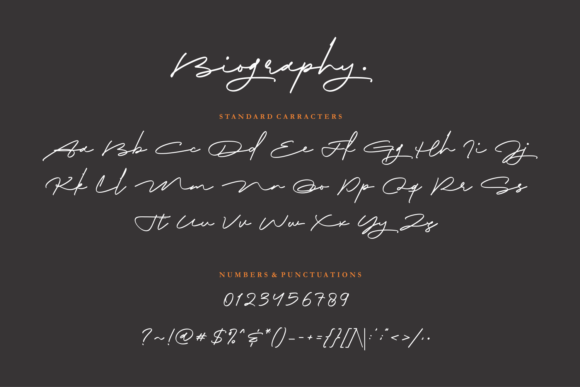 Biography.
STANDARD CARRACTERS
Aa Bb Cc Dd Ee Ff Gg Hh Ii Jj
Kk Ll Mm Nn Oo Pp Qq Rr Ss
Tt Uu Vv Ww Xx Yy Zz
NUMBERS & PUNCTUATIONS
0123456789
?~!@#$%^&*()_-+={}[]\|:';"<>/.,